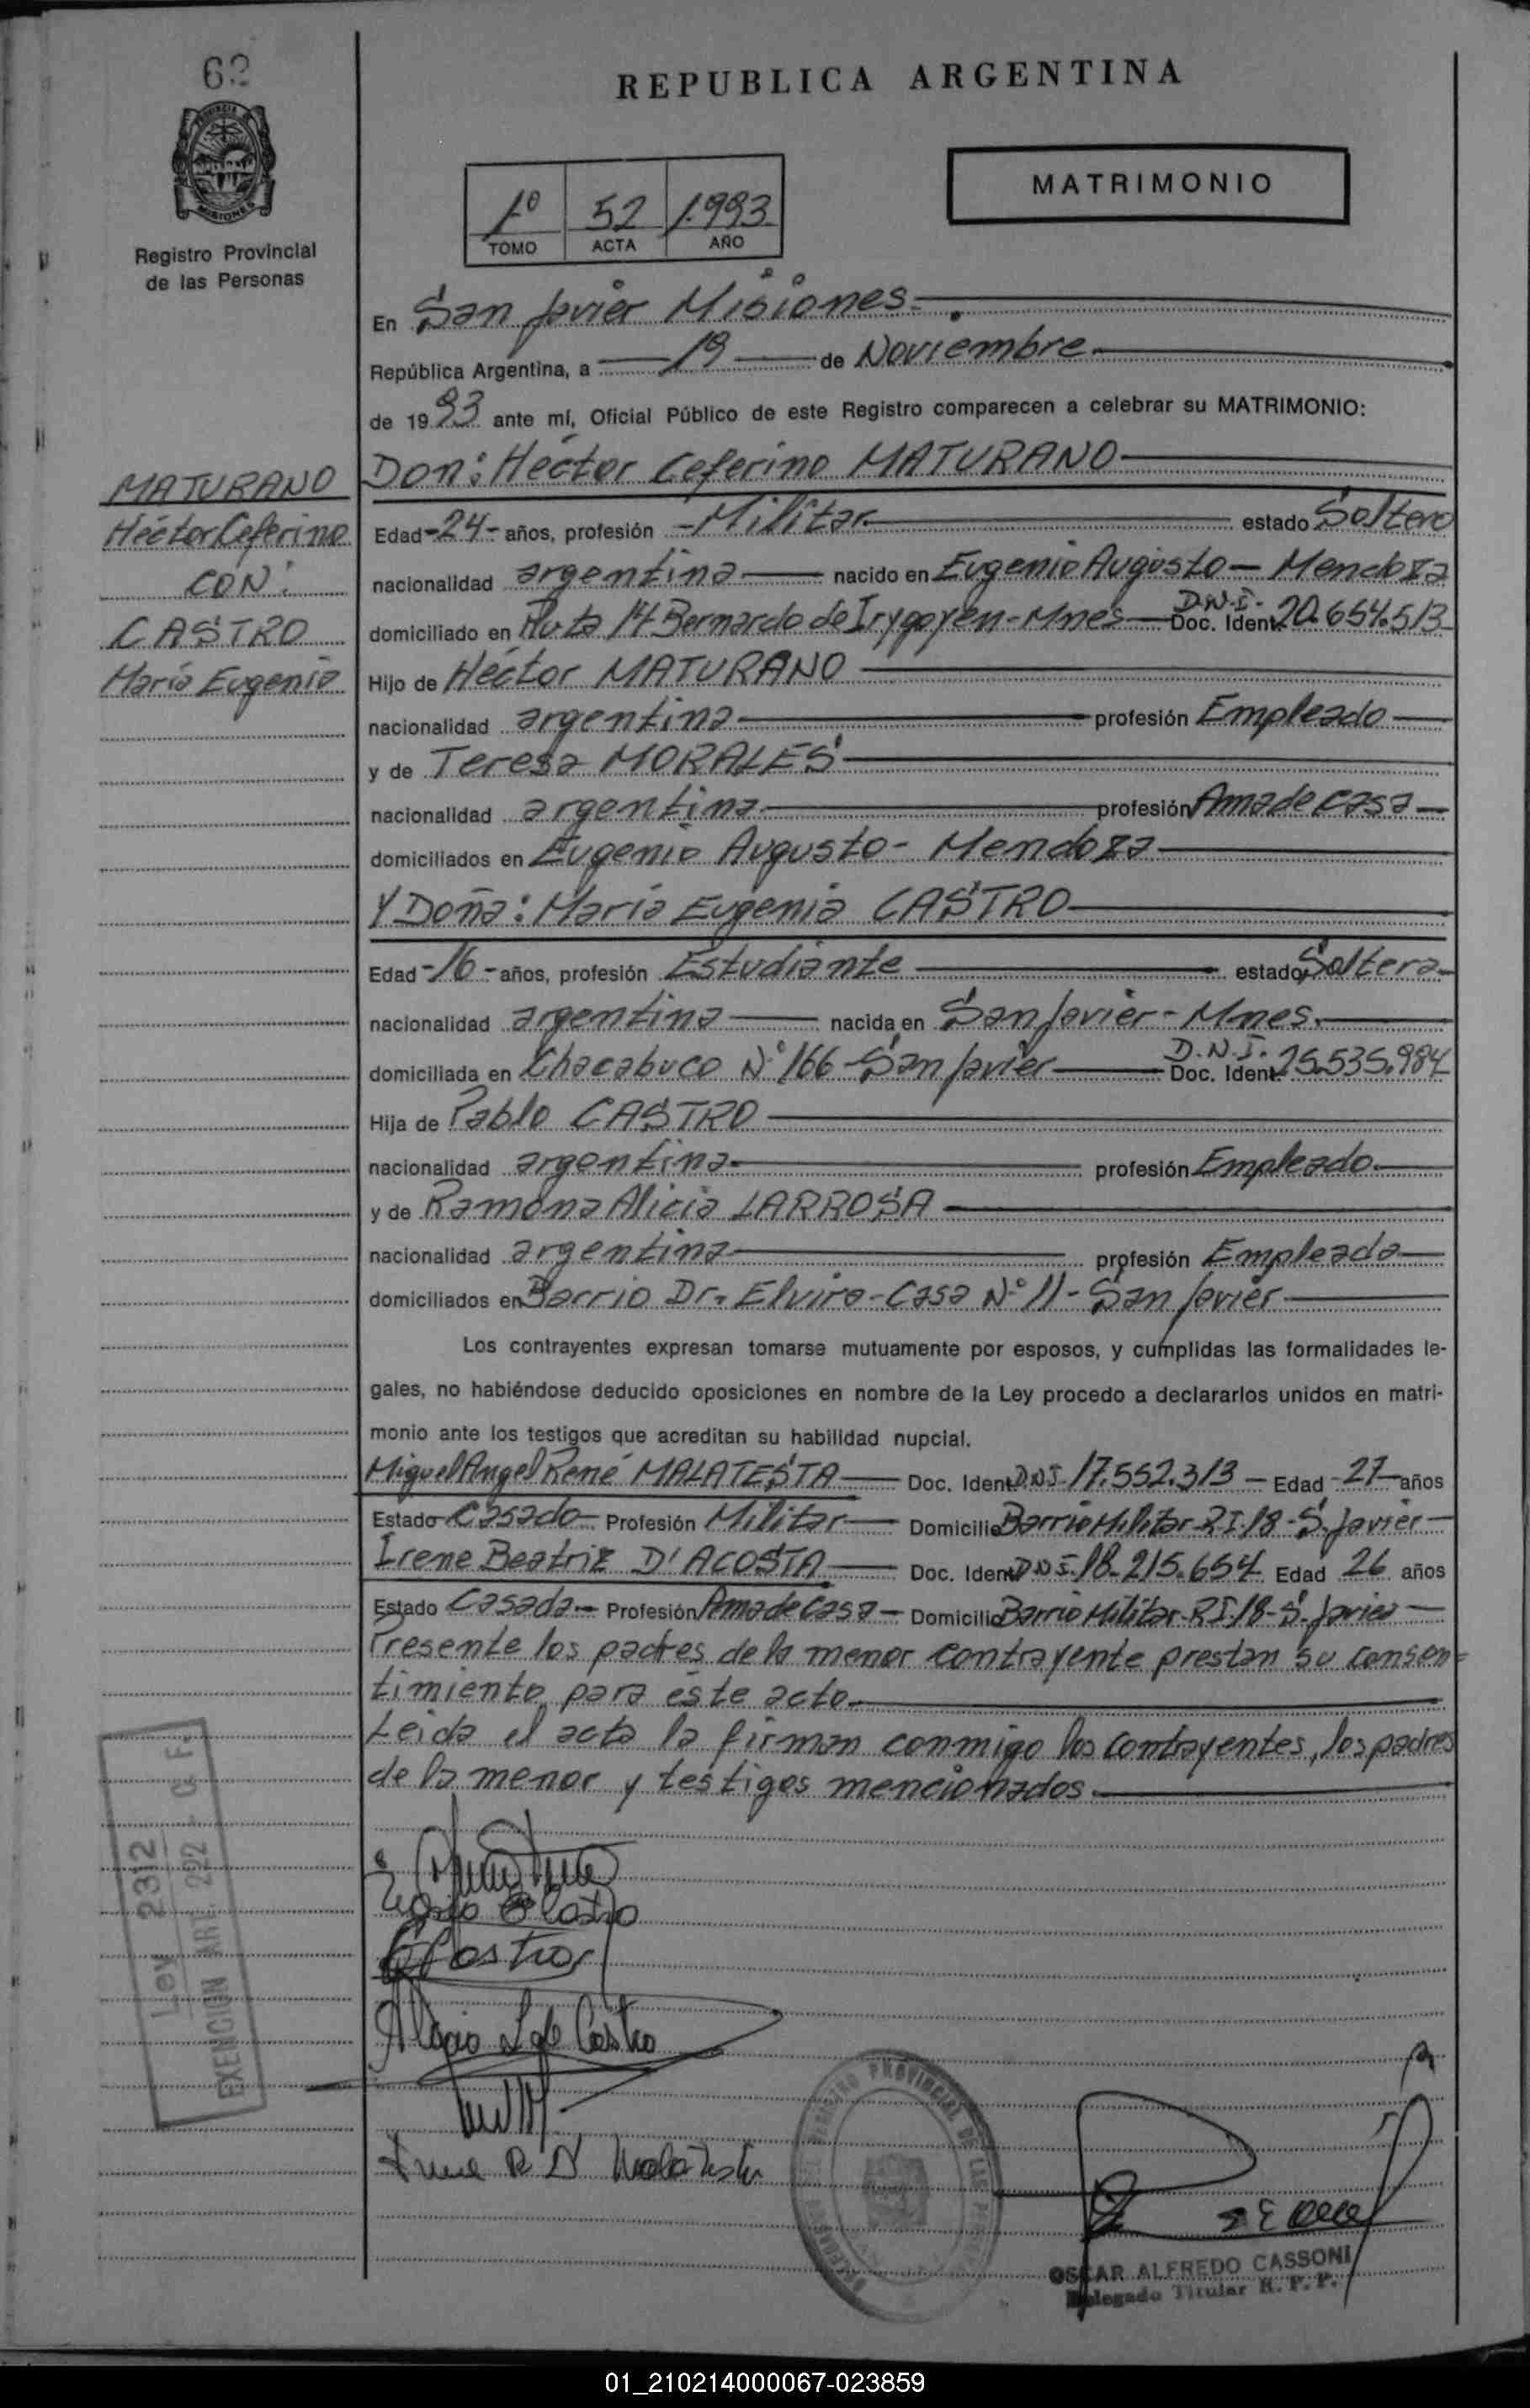 62
REPUBLICA ARGENTINA
PROVINCIA DE
MISIONES
Registro Provincial
de las Personas
MATRIMONIO
1º 52 1.993
TOMO ACTA AÑO
En San Javier Misiones.
República Argentina, a 19 de Noviembre
de 19 93 ante mí, Oficial Público de este Registro comparecen a celebrar su MATRIMONIO:
MATURANO
Héctor Ceferino
CON:
CASTRO
María Eugenia
Don: Héctor Ceferino MATURANO
Edad -24- años, profesión -Militar estado Soltero
nacionalidad argentina nacido en Eugenio Augusto - Mendoza
domiciliado en Ruta 14 Bernardo de Irygoyen - Mnes D.N.I. Doc. Ident. 20.654.513
Hijo de Héctor MATURANO
nacionalidad argentina profesión Empleado
y de Teresa MORALES
nacionalidad argentina profesión Ama de casa
domiciliados en Eugenio Augusto - Mendoza
Y Doña: María Eugenia CASTRO
Edad -16- años, profesión Estudiante estado Soltera
nacionalidad argentina nacida en San Javier - Mnes.
domiciliada en Chacabuco Nº 166 - San Javier D.N.I. Doc. Ident. 25.535.984
Hija de Pablo CASTRO
nacionalidad argentina profesión Empleado
y de Ramona Alicia LARROSA
nacionalidad argentina profesión Empleada
domiciliados en Barrio Dr. Elvira - Casa Nº 11 - San Javier
Los contrayentes expresan tomarse mutuamente por esposos, y cumplidas las formalidades le-
gales, no habiéndose deducido oposiciones en nombre de la Ley procedo a declararlos unidos en matri-
monio ante los testigos que acreditan su habilidad nupcial.
Miguel Angel René MALATESTA Doc. Ident. D.N.I. 17.552.313 - Edad -27- años
Estado Casado - Profesión Militar Domicilio Barrio Militar R.I.18 - S. Javier
Irene Beatriz D'ACOSTA Doc. Ident. D.N.I. 18.215.654 Edad 26 años
Estado Casada - Profesión Ama de casa - Domicilio Barrio Militar R.I.18 - S. Javier
Presente los padres de la menor contrayente prestan su consen=
timiento para éste acto.
Leida el acta la firman conmigo los contrayentes, los padres
de la menor y testigos mencionados.
Ley 2312
EXENCION ART. 292 - C. F.
Castro
Alicia L de Castro
REGISTRO PROVINCIAL DE LAS PERSONAS
OSCAR ALFREDO CASSONI
Delegado Titular R. P. P.
01_210214000067-023859